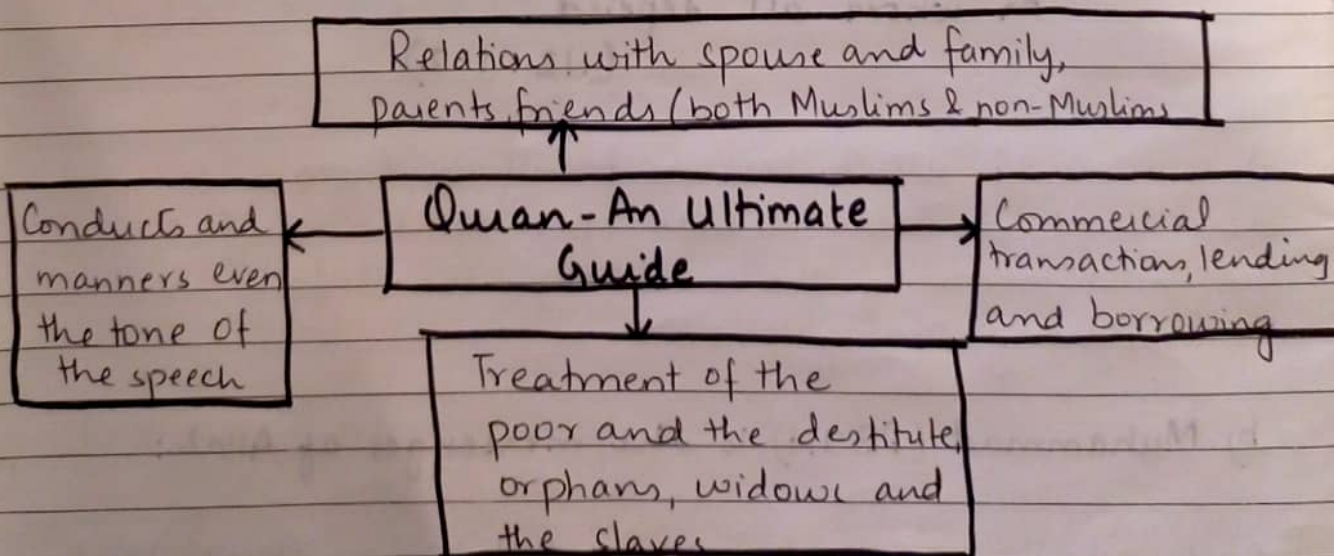 Relations with spouse and family,
parents, friends (both Muslims & non-Muslims
Conducts and
manners even
the tone of
the speech
Quran - An Ultimate
Guide
Commercial
transactions, lending
and borrowing
Treatment of the
poor and the destitute,
orphans, widows and
the slaves